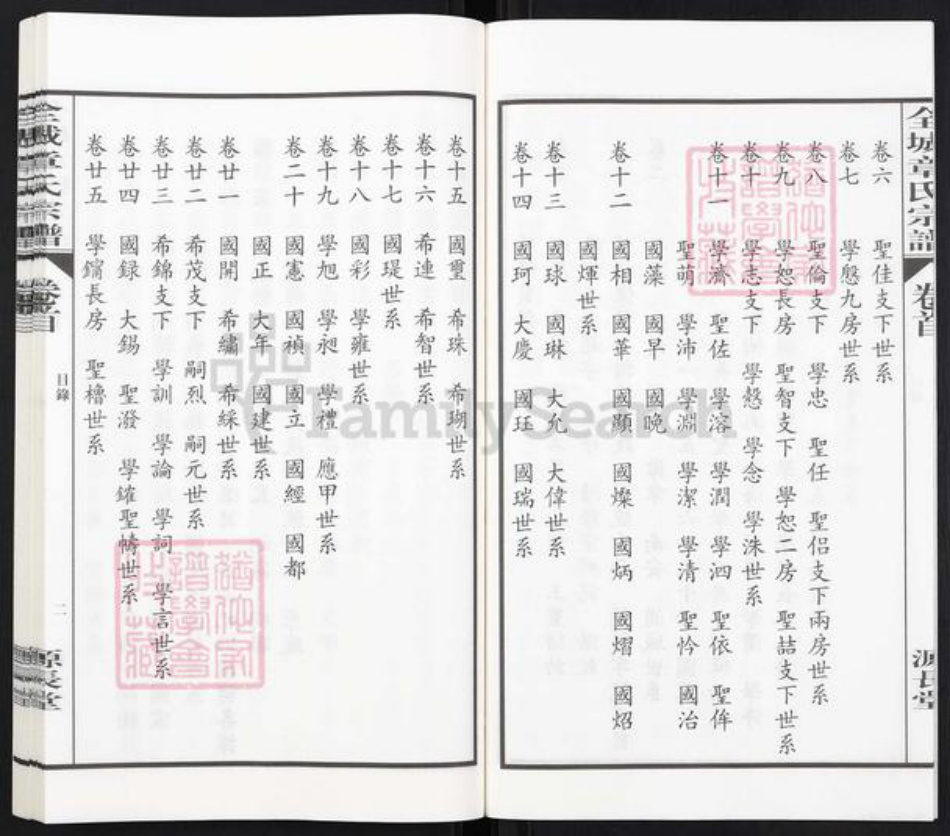 全城章氏宗譜
卷首
源長堂
卷六　聖佳支下世系
卷七　學慇九房世系
卷八　聖倫支下　學忠　聖任　聖侶支下兩房世系
卷九　學恕長房　聖智支下　學恕二房　聖喆支下世系
卷十　學志支下　學慤　學念　學洙世系
卷十一　學濟　聖佐　學溶　學潤　學泗　聖依　聖侔
聖萌　學沛　學淵　學潔　學清　聖忴　國治
國藻　國早　國晚
卷十二　國相　國華　國顯　國燦　國炳　國熠　國炤
國煇世系
卷十三　國球　國琳　大允　大偉世系
卷十四　國珂　大慶　國珏　國瑞世系
卷十五　國璽　希珠　希瑚世系
卷十六　希連　希智世系
卷十七　國瑅世系
卷十八　國彩　學雍世系
卷十九　學旭　學昶　學禮　應甲世系
卷二十　國憲　國禎　國立　國經　國都
國正　大年　國建世系
卷廿一　國開　希繡　希綵世系
卷廿二　希茂支下　嗣烈　嗣元世系
卷廿三　希錦支下　學訓　學論　學詞　學言世系
卷廿四　國録　大錫　聖潑　學鑵聖幬世系
卷廿五　學鑌長房　聖櫓世系
全城章氏宗譜
卷首
目錄
二
源長堂
FamilySearch